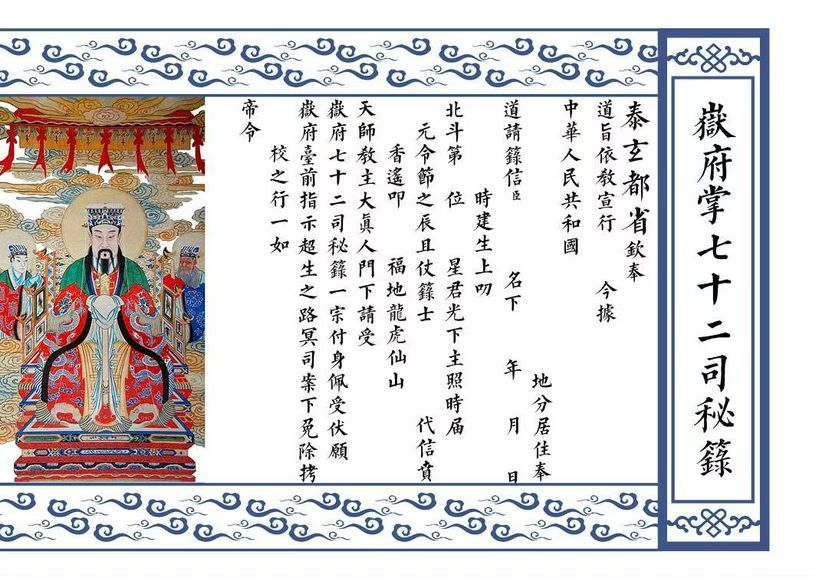 嶽府掌七十二司秘籙
泰玄都省欽奉
道旨依教宣行 今據
中華人民共和國
地分居住奉
道請籙信臣 名下 年 月 日
時建生上叨
北斗第 位 星君光下主照時届
元令節之辰且仗籙士 代信賁
香遙叩 福地龍虎仙山
天師教主大眞人門下請受
嶽府七十二司秘籙一宗付身佩受伏願
嶽府臺前指示超生之路冥司案下免除拷
校之行一如
帝令